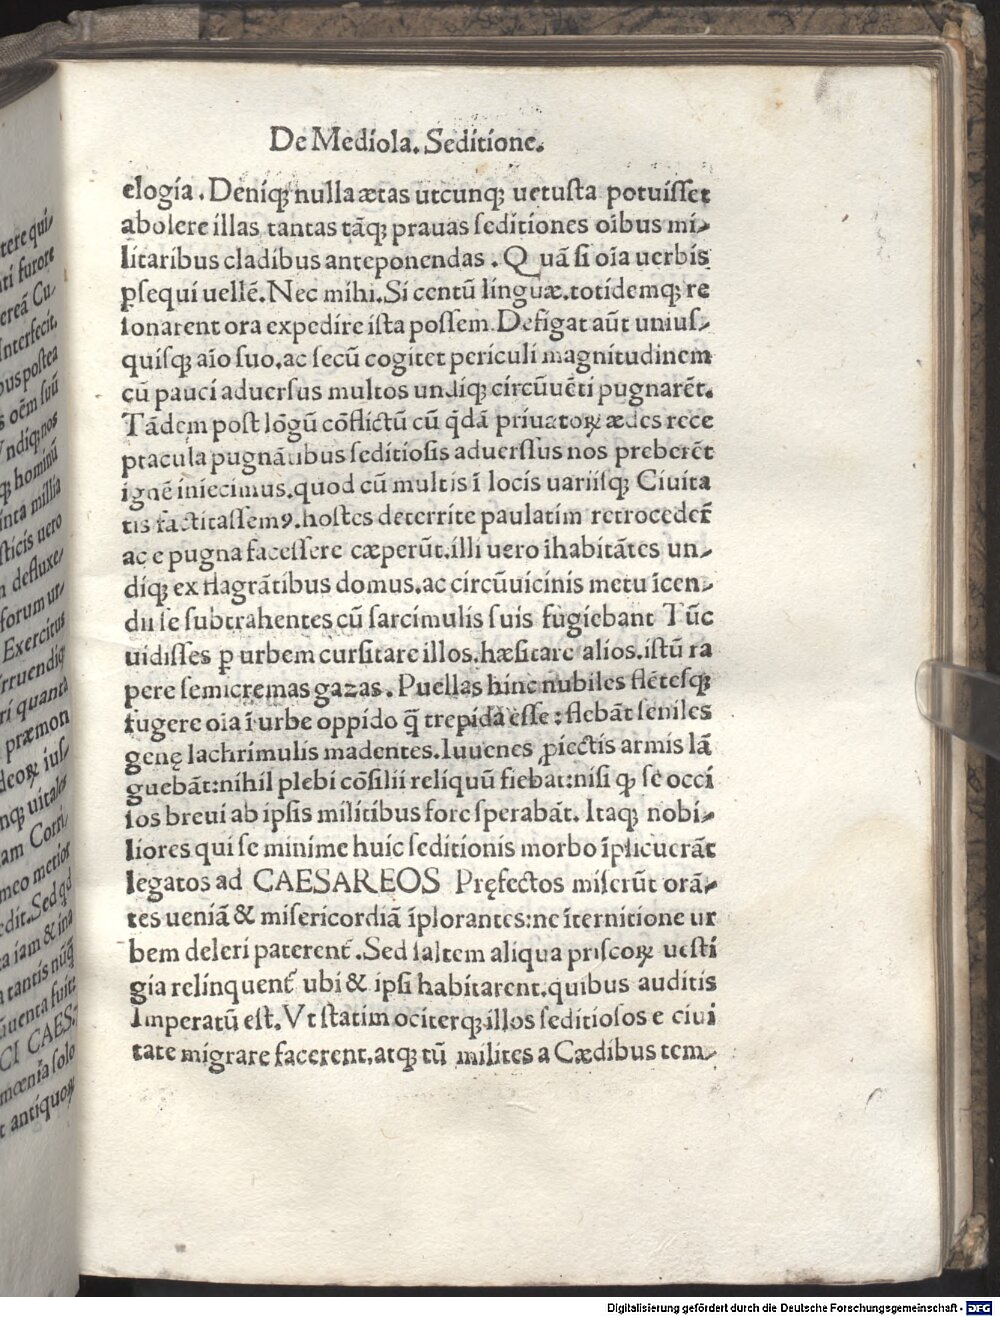 De Mediola. Seditione.
elogia. Deniqꝫ nulla ætas utcunqꝫ uetusta potuisset
abolere illas tantas tãqꝫ prauas seditiones oibus mi-
litaribus cladibus anteponendas. Quã si oia uerbis
ꝑsequi uellẽ. Nec mihi. Si centũ linguæ. totidemqꝫ re
sonarent ora expedire ista possem. Defigat aũt unius-
quisqꝫ aio suo, ac secũ cogitet periculi magnitudinem
cũ pauci aduersus multos undiqꝫ circũuẽti pugnarẽt.
Tãdem post lõgũ cõflictũ cũ q̃dã priuatoꝝ ædes rece
ptacula pugnãtibus seditiosis aduerssus nos preberẽt
ignẽ iniecimus, quod cũ multis ĩ locis uariisqꝫ Ciuita
tis factitassemꝰ, hostes deterrite paulatim retroceder̃
ac e pugna facessere cæperũt, illi uero ihabitãtes un-
diqꝫ ex flagrãtibus domus, ac circũuicinis metu ĩcen-
dii se subtrahentes cũ sarcimulis suis fugiebant Tũc
uidisses ꝑ urbem cursitare illos, hæsitare alios, istũ ra
pere semicremas gazas. Puellas hinc nubiles flẽtesqꝫ
fugere oia ĩ urbe oppido q̃ trepida esse: flebãt seniles
genę lachrimulis madentes. Iuuenes ꝓiectis armis lã
guebãt: nihil plebi cõsilii reliquũ fiebat: nisi ꝙ se occi
sos breui ab ipsis militibus fore sperabãt. Itaqꝫ nobi-
liores qui se minime huic seditionis morbo ĩplicuerãt
legatos ad CAESAREOS Pręfectos miserũt orã-
tes ueniã & misericordiã ĩplorantes: ne ĩternitione ur
bem deleri paterent᷑. Sed saltem aliqua priscoꝝ uesti
gia relinquent᷑ ubi & ipsi habitarent, quibus auditis
Imperatũ est. Vt statim ociterqꝫ illos seditiosos e ciui
tate migrare facerent, atqꝫ tũ milites a Cædibus tem-
Digitalisierung gefördert durch die Deutsche Forschungsgemeinschaft - DFG